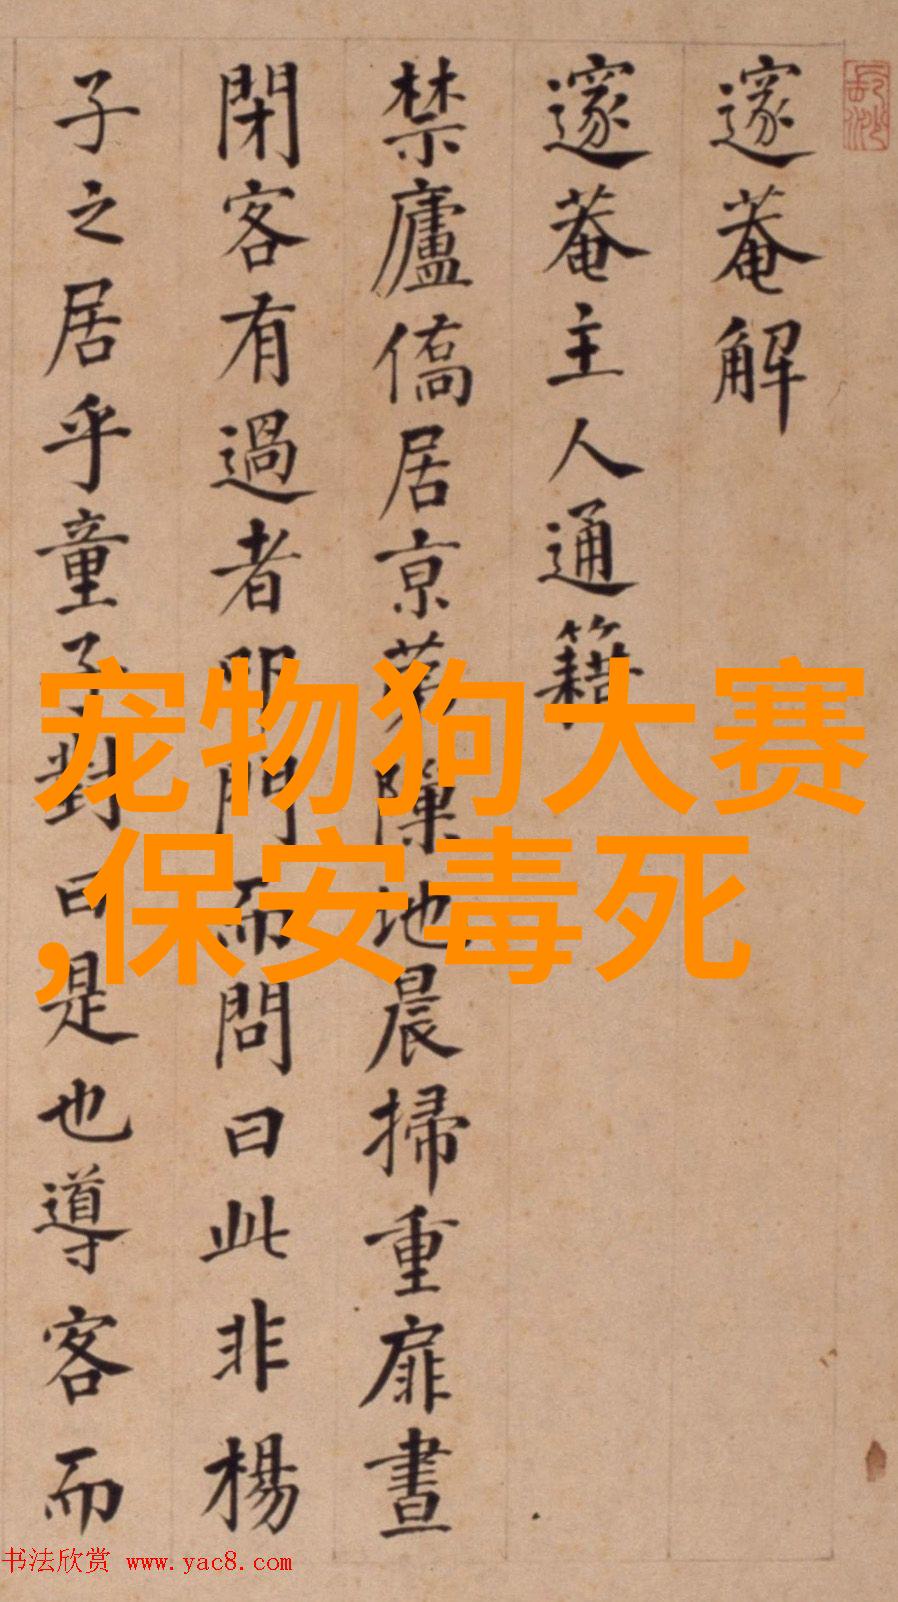 邃菴解
邃菴主人通籍
禁廬僑居京
地晨掃重扉晝
閉客有過者
門而問曰此非楊
子之居乎童子對曰是也導客而
宠物狗大赛
,保安毒死
书法欣赏 www.yac8.com